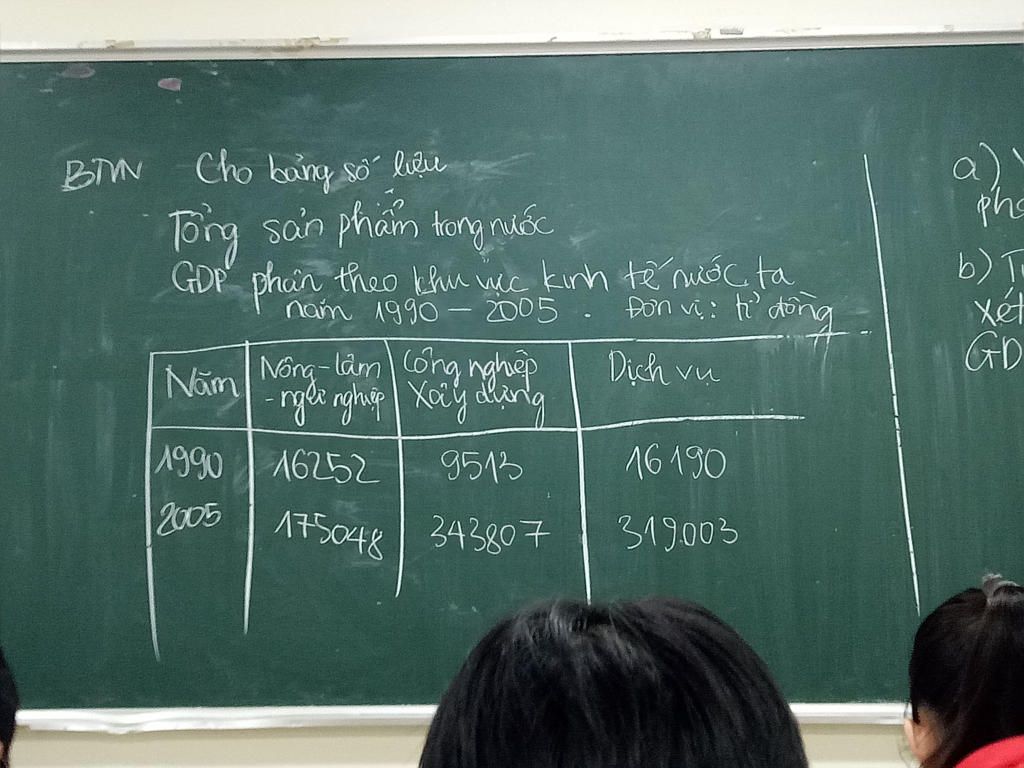 BTVN Cho bảng số liệu
Tổng sản phẩm trong nước
GDP phân theo khu vực kinh tế nước ta
năm 1990 - 2005. Đơn vị: tỉ đồng
Năm
Nông-lâm
-ngư nghiệp
Công nghiệp
Xây dựng
Dịch vụ
1990 16252 9513 16190
2005 175048 343807 319.003
a)
b)
xét
GD